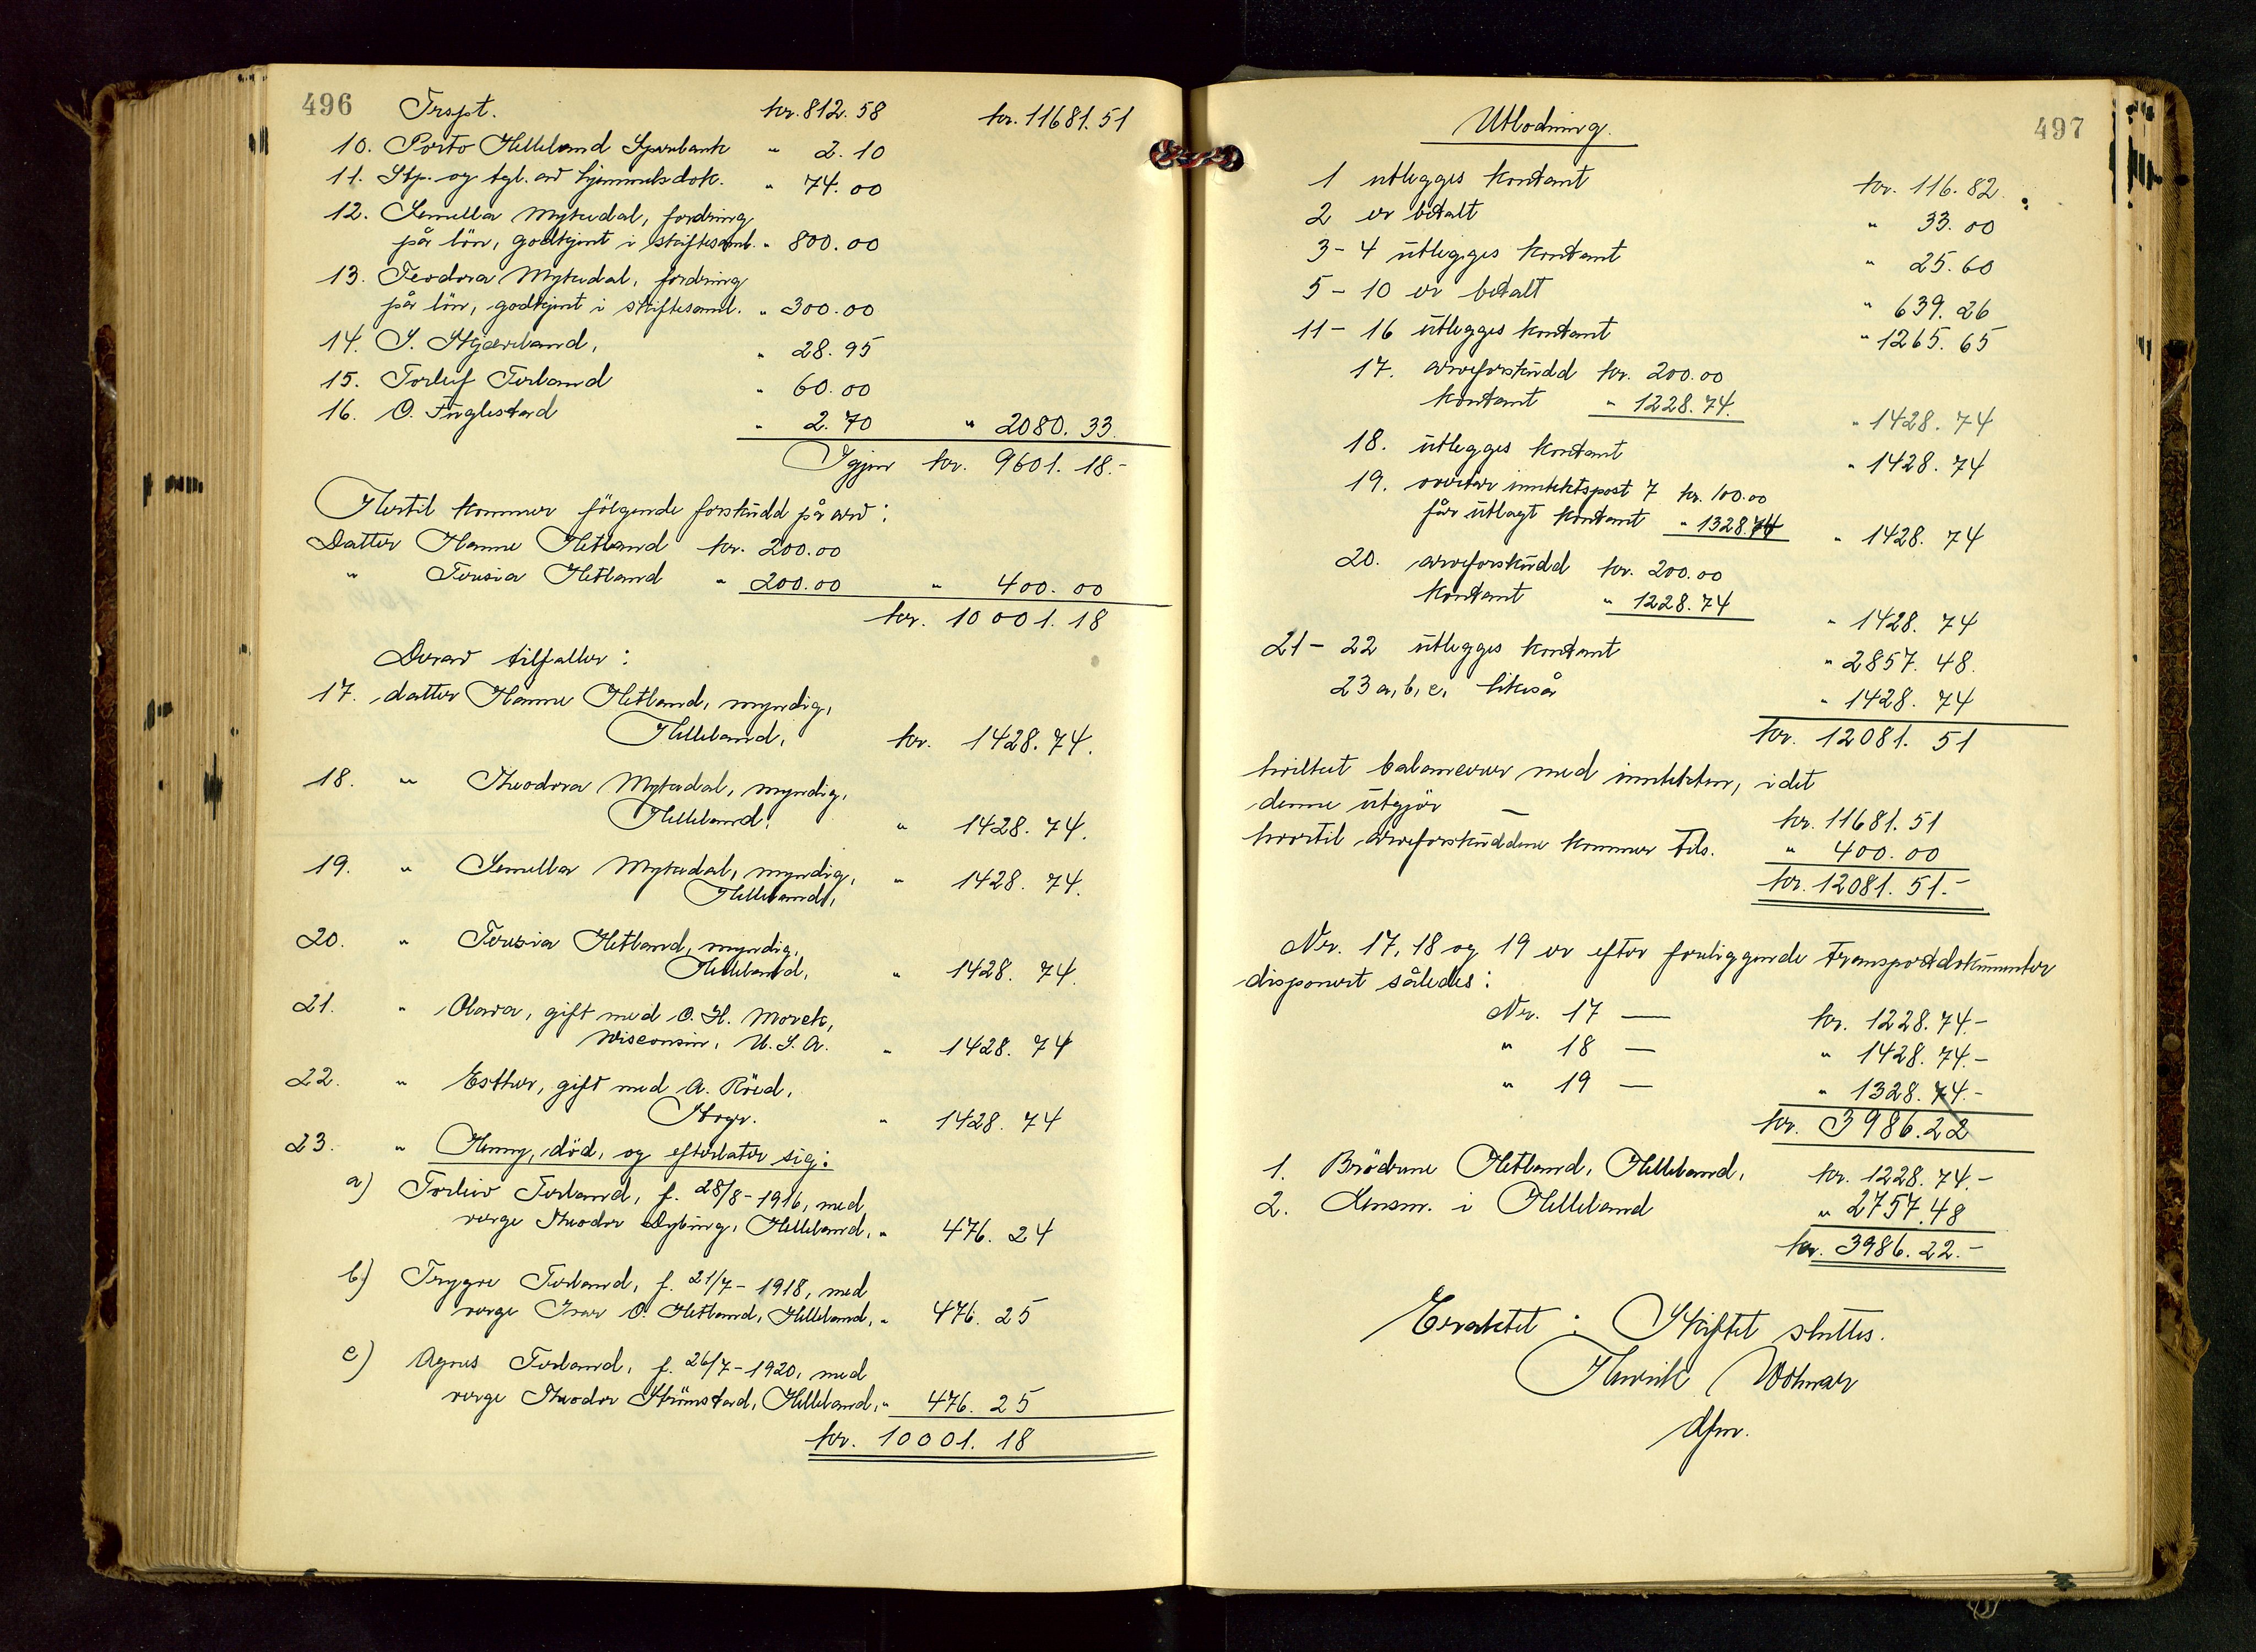 496
Trspt. kr. 812.58 kr. 11681.51
10. Porto Helleland Sparebank " 2.10
11. Stp. og tgl. av hjemmelsdok. " 74.00
12. Semella Mykedal, fordring
på lön, godkjent i skiftesaml. " 800.00
13. Teodora Mykedal, fordring
på lön, godkjent i skiftesaml. " 300.00
14. S. Skjæveland, " 28.95
15. Torleif Torland " 60.00
16. O. Fuglestad " 2.70 " 2080.33.
Igjen kr. 9601.18.-
Hertil kommer fölgende forskudd på arv:
Datter Hanne Hetland kr. 200.00
" Teresia Hetland " 200.00 " 400.00
kr. 10001.18
Derav tilfaller:
17. datter Hanne Hetland, myndig,
Helleland, kr. 1428.74.
18. " Theodora Mykedal, myndig,
Helleland, " 1428.74.
19. " Semella Mykedal, myndig,
Helleland, " 1428.74.
20. " Teresia Hetland, myndig,
Helleland, " 1428.74.
21. " Olava, gift med O. H. Morek,
Wisconsin, U.S.A. " 1428.74
22. " Esther, gift med A. Röed,
" 1428.74
23. " Henny, död, og efterlater sig:
a) Torleiv Torland, f. 28/8-1916, med
verge Theodor Dybing, Helleland, " 476.24
b) Trygve Torland, f. 21/7-1918, med
verge Ivar O. Hetland, Helleland, " 476.25
c) Agnes Torland, f. 26/7-1920, med
verge Theodor Strömstad, Helleland, " 476.25
kr. 10001.18
497
Utlodning.
1 utlegges kontant kr. 116.82.
2 er betalt " 33.00
3-4 utlegges kontant " 25.60
5-10 er betalt " 639.26
11-16 utlegges kontant " 1265.65
17. arveforskudd kr. 200.00
kontant " 1228.74. " 1428.74
18. utlegges kontant " 1428.74
19. overtar inntektspost 7 kr. 100.00
får utlagt kontant " 1328.74 " 1428.74
20. arveforskudd kr. 200.00
kontant " 1228.74 " 1428.74
21-22 utlegges kontant " 2857.48.
23 a, b, c, likeså " 1428.74
kr. 12081.51
hvilket balancerer med inntekten, idet
denne utgjör — kr. 11681.51
hvortil arveforskuddene kommer tils. " 400.00
kr. 12081.51.-
Nr. 17, 18 og 19 er efter foreliggende transportdokumenter
disponert således:
Nr. 17 — kr. 1228.74.-
" 18 — " 1428.74.-
" 19 — " 1328.74.-
kr. 3986.22
1. Brödrene Hetland, Helleland, kr. 1228.74.-
2. Lensm. i Helleland " 2757.48
kr. 3986.22.-
Eragtet: Skiftet sluttes.
Henrik
dfm.